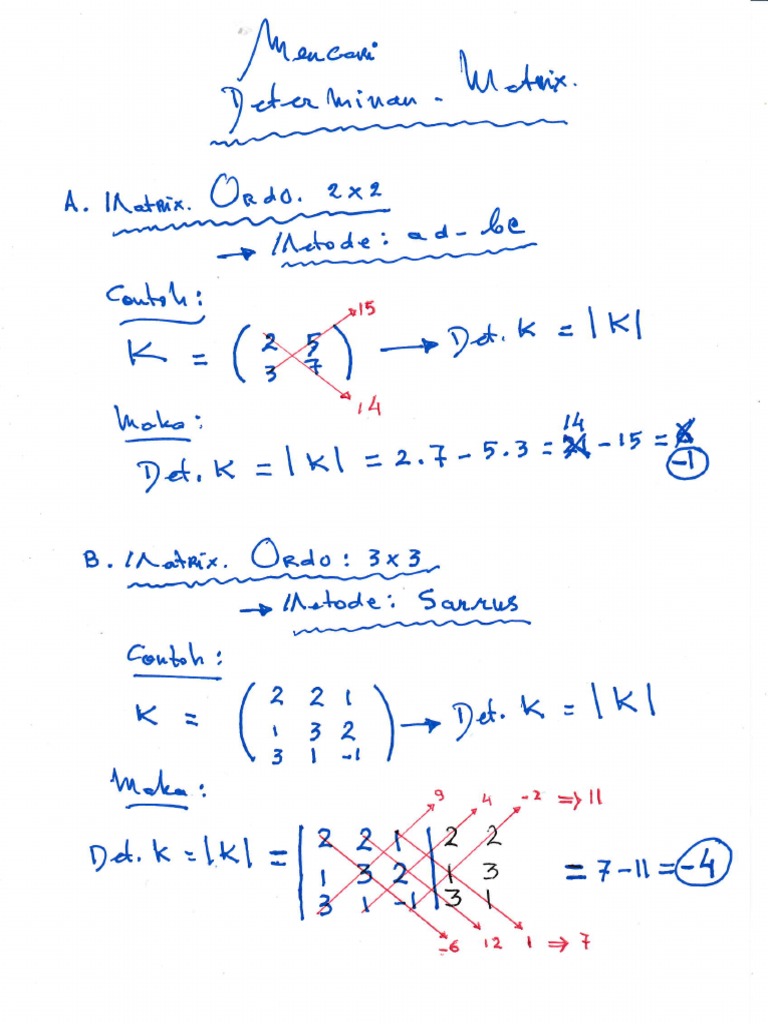 Mencari
Determinan - Matrix.
A. Matrix. Ordo. 2x2
→ Metode: ad-bc
Contoh:
15
K = ( 2 5 ) → Det. K = |K|
3 7
14
Maka:
14
Det. K = |K| = 2.7 - 5.3 = - 15 =
-1
B. Matrix. Ordo: 3x3
→ Metode: Sarrus
Contoh:
2 2 1
K = ( 1 3 2 ) → Det. K = |K|
3 1 -1
Maka:
9 4 -2 ⇒ 11
Det. K = |K| = | 2 2 1 | 2 2
1 3 2 1 3 = 7 - 11 = -4
3 1 -1 3 1
-6 12 1 ⇒ 7